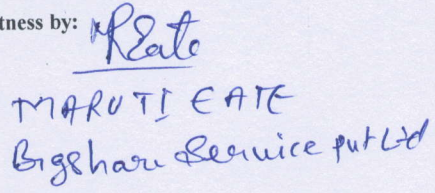 tness by: MEate
MARUTI EATE
Bigshare Service Pvt Ltd